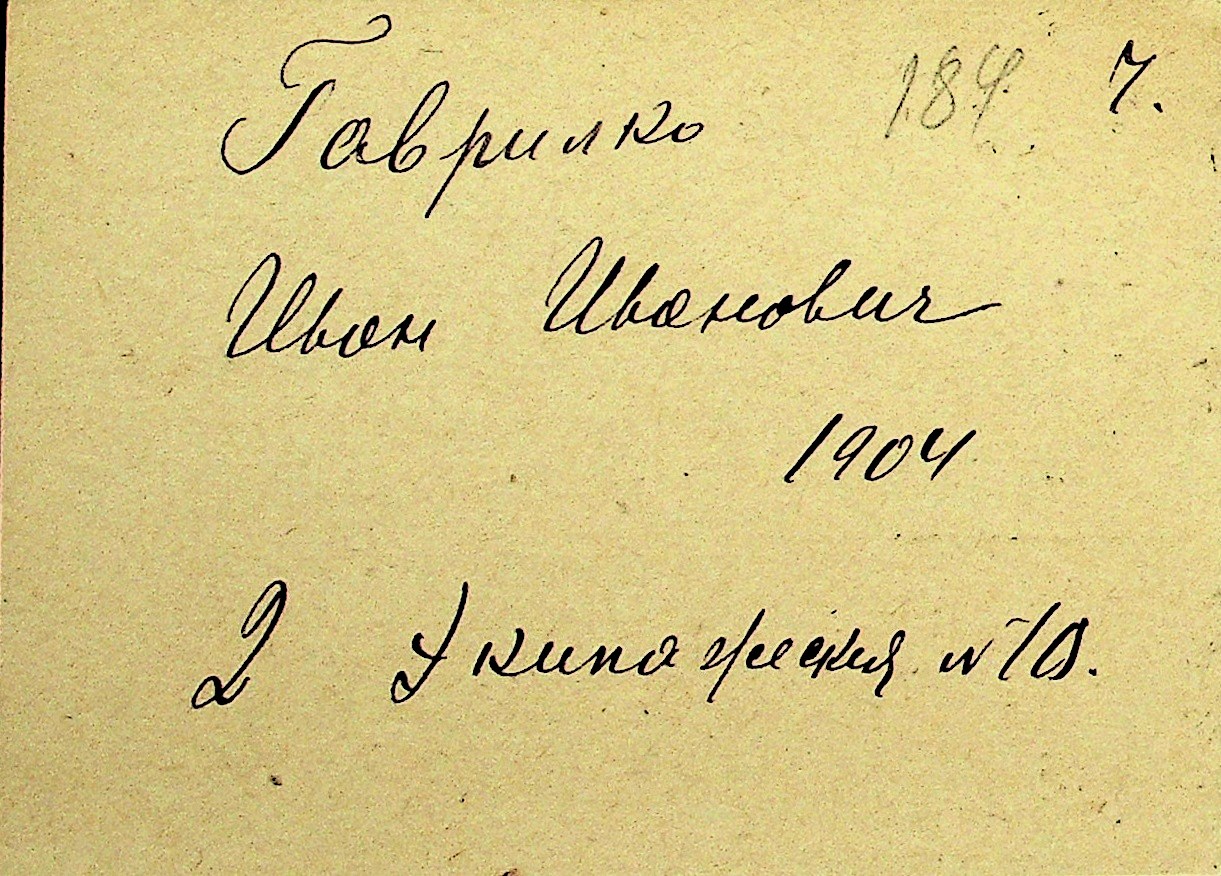 Гаврилко 184 7.
Иван Иванович
1904
2 Экипажеская № 10.